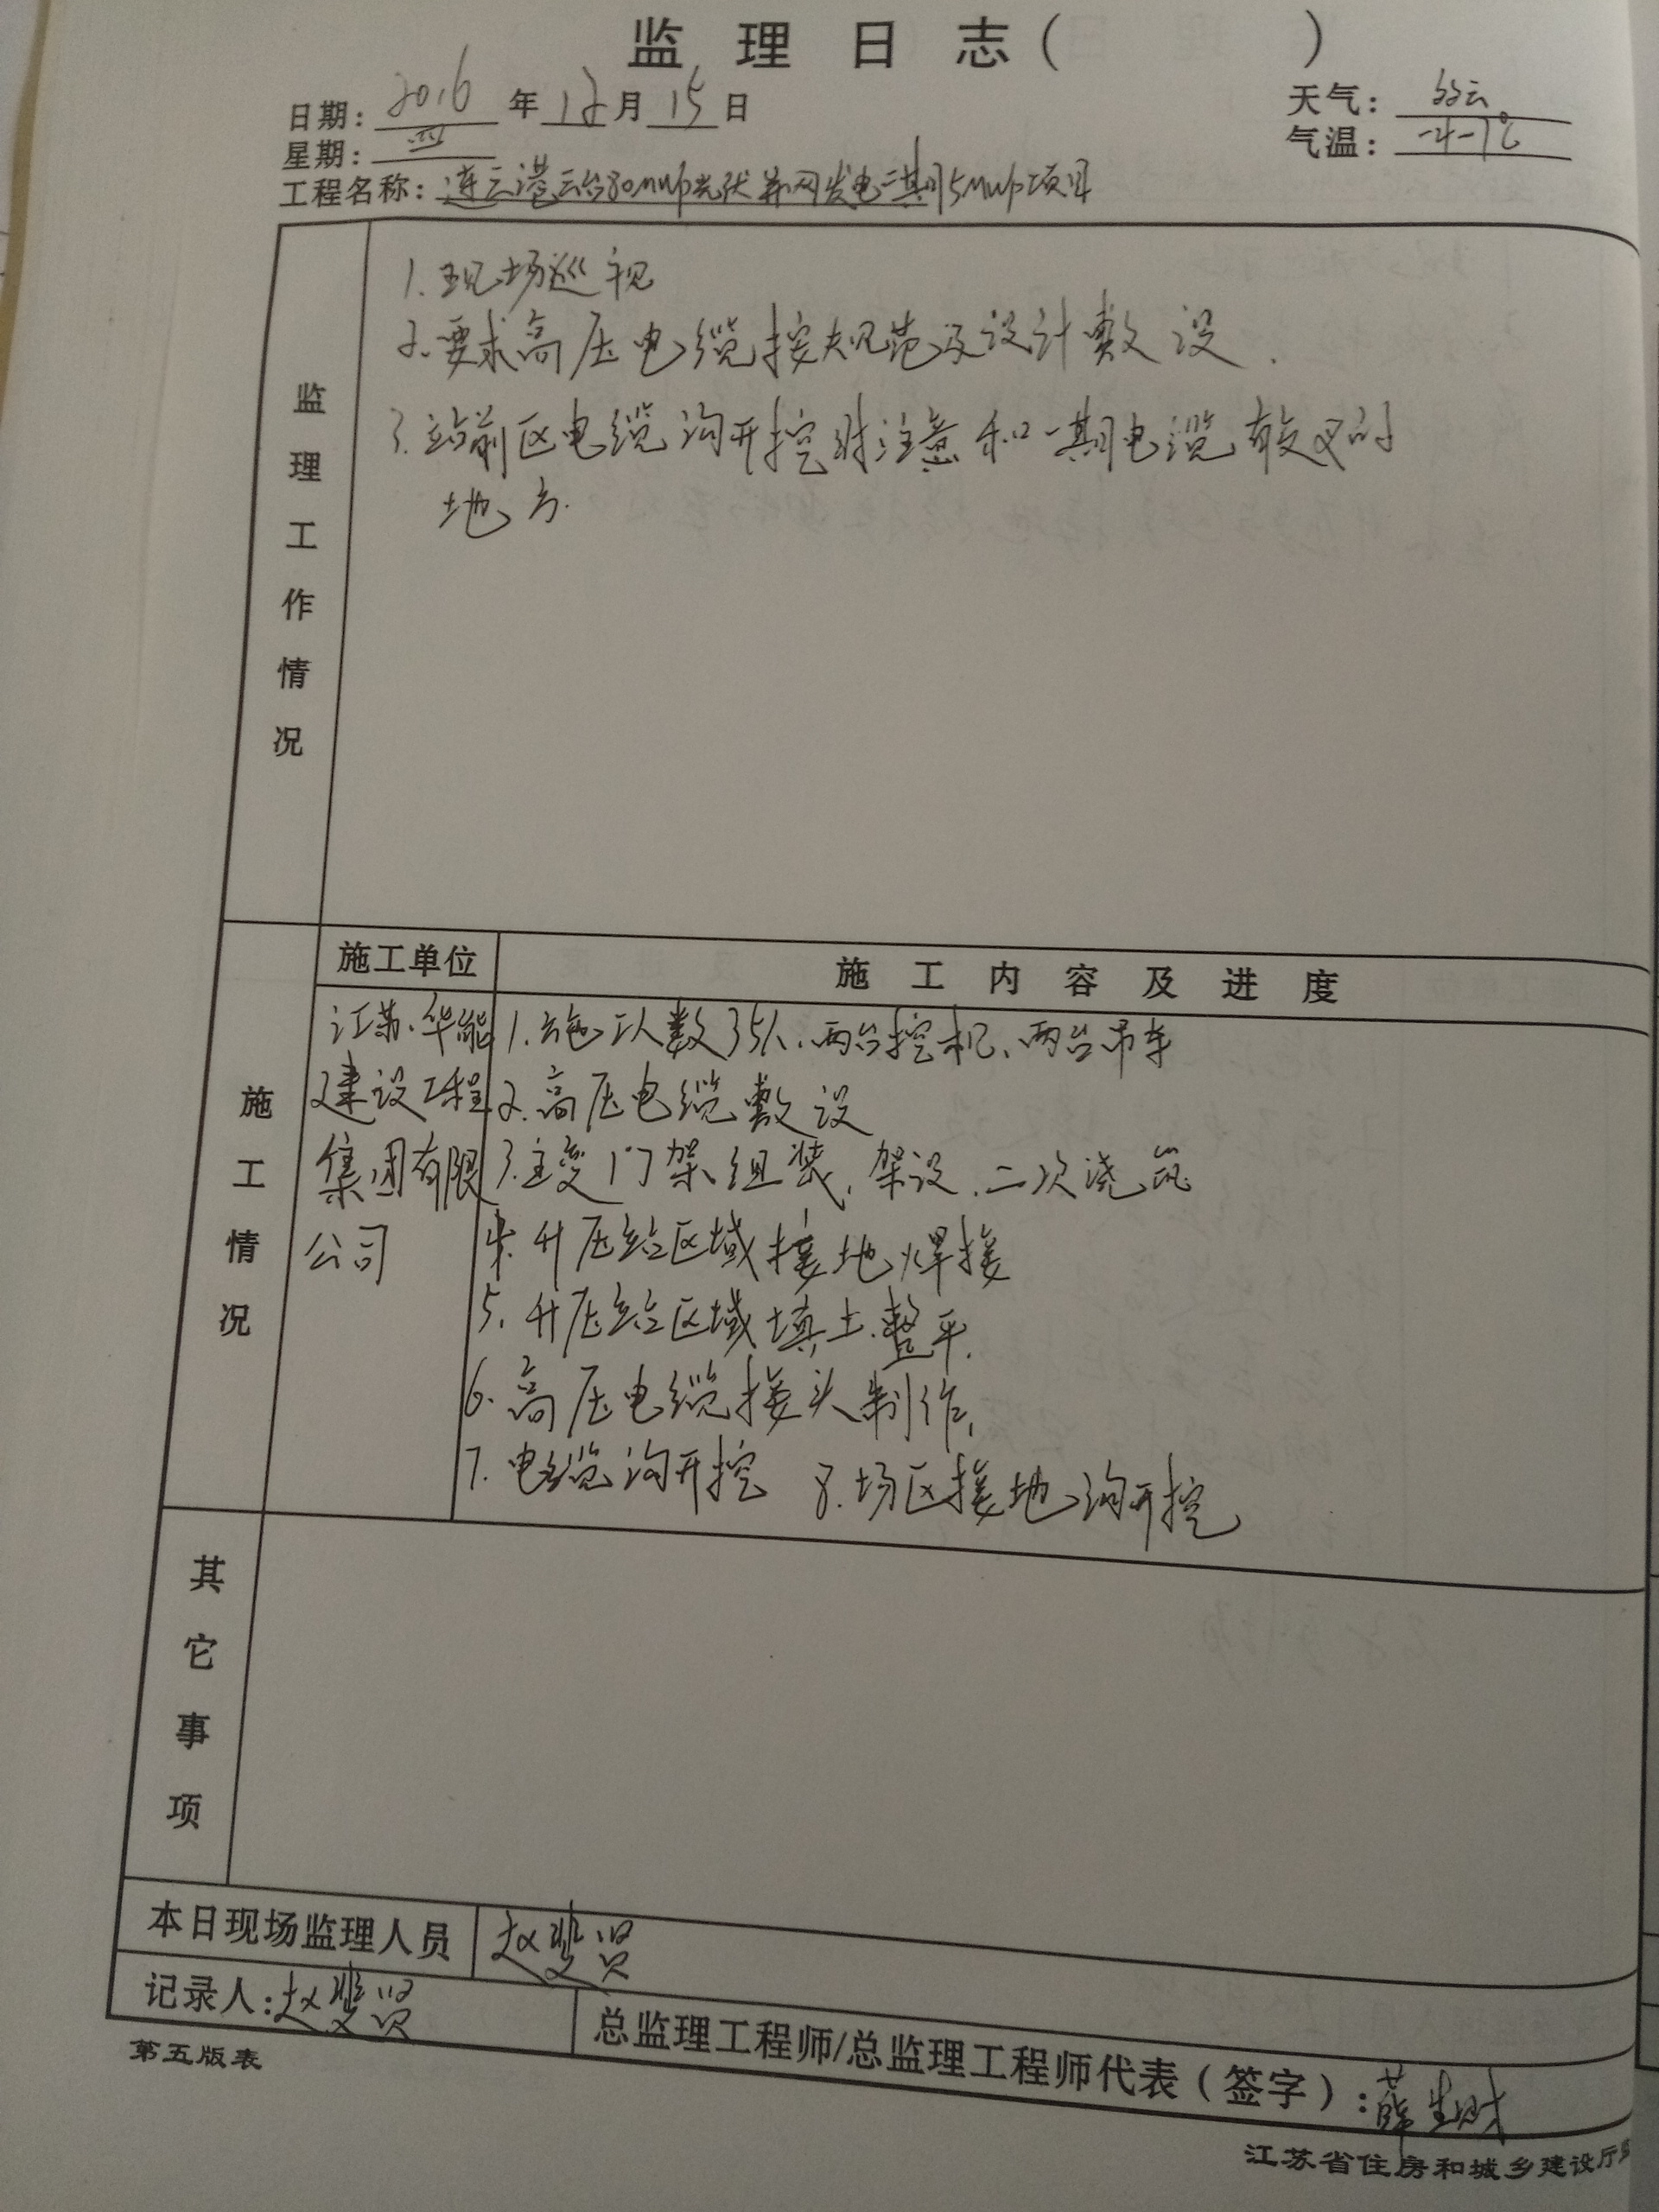 监理日志( )
日期: 2016 年 12 月 15 日
天气: 多云
星期: 四
气温: -4-7℃
工程名称: 连云港云台80MWp光伏并网发电二期15MWp项目
监理工作情况
1. 现场巡视
2. 要求高压电缆按规范及设计敷设.
3. 站前区电缆沟开挖时注意和一期电缆有交叉的
地方.
施工情况
施工单位
施工内容及进度
江苏华能
建设工程
集团有限
公司
1. 施工人数35人、两台挖机、两台吊车
2. 高压电缆敷设
3. 主变门架组装、架设、二次浇筑
4. 升压站区域接地焊接
5. 升压站区域填土整平.
6. 高压电缆接头制作,
7. 电缆沟开挖 8. 场区接地沟开挖
其它事项
本日现场监理人员 赵斐贤
记录人: 赵斐贤
总监理工程师/总监理工程师代表(签字): 薛生财
第五版表
江苏省住房和城乡建设厅